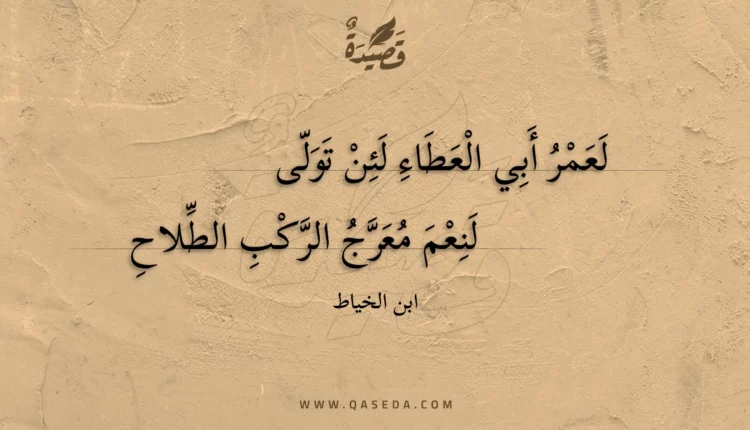 قَصِيدَةٌ
لَعَمْرُ أَبِي الْعَطَاءِ لَئِنْ تَوَلّى
لَنِعْمَ مُعَرَّجُ الرَّكْبِ الطِّلاحِ
ابن الخياط
WWW.QASEDA.COM